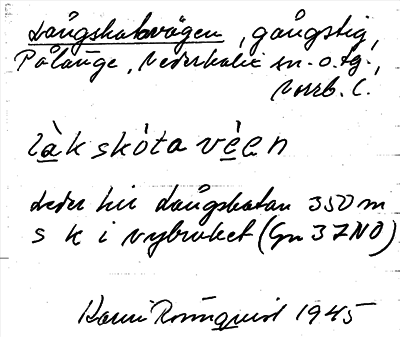 Långskatavägen, gångstig,
Pålänge, Nederkalix sn. o. tg.,
Norrb. l.
làkskòta vèen
Leder till Långskatan 350 m
s k i nybruket (Gn 37NO)
Rönnquist 1945